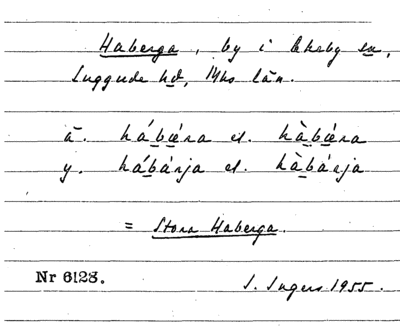 Haberga, by i Ekeby sn,
Luggude hd, Mhs län.
ä. hábœ́ra el. hàbœ́ra
y. hábárja el. hàbárja
= Stora Haberga.
Nr 6123. I. Ingers 1955.